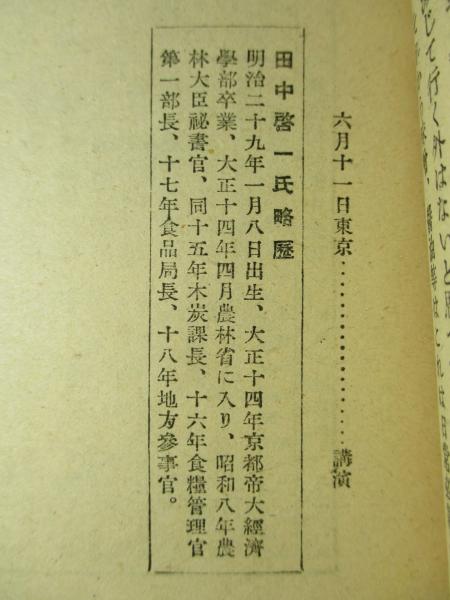 じて行く外はないと思
醤油等はこれは日
六月十一日東京…………………講演
田中啓一氏略歷
明治二十九年一月八日出生、大正十四年京都帝大經濟
學部卒業、大正十四年四月農林省に入り、昭和八年農
林大臣祕書官、同十五年木炭課長、十六年食糧管理官
第一部長、十七年食品局長、十八年地方參事官。